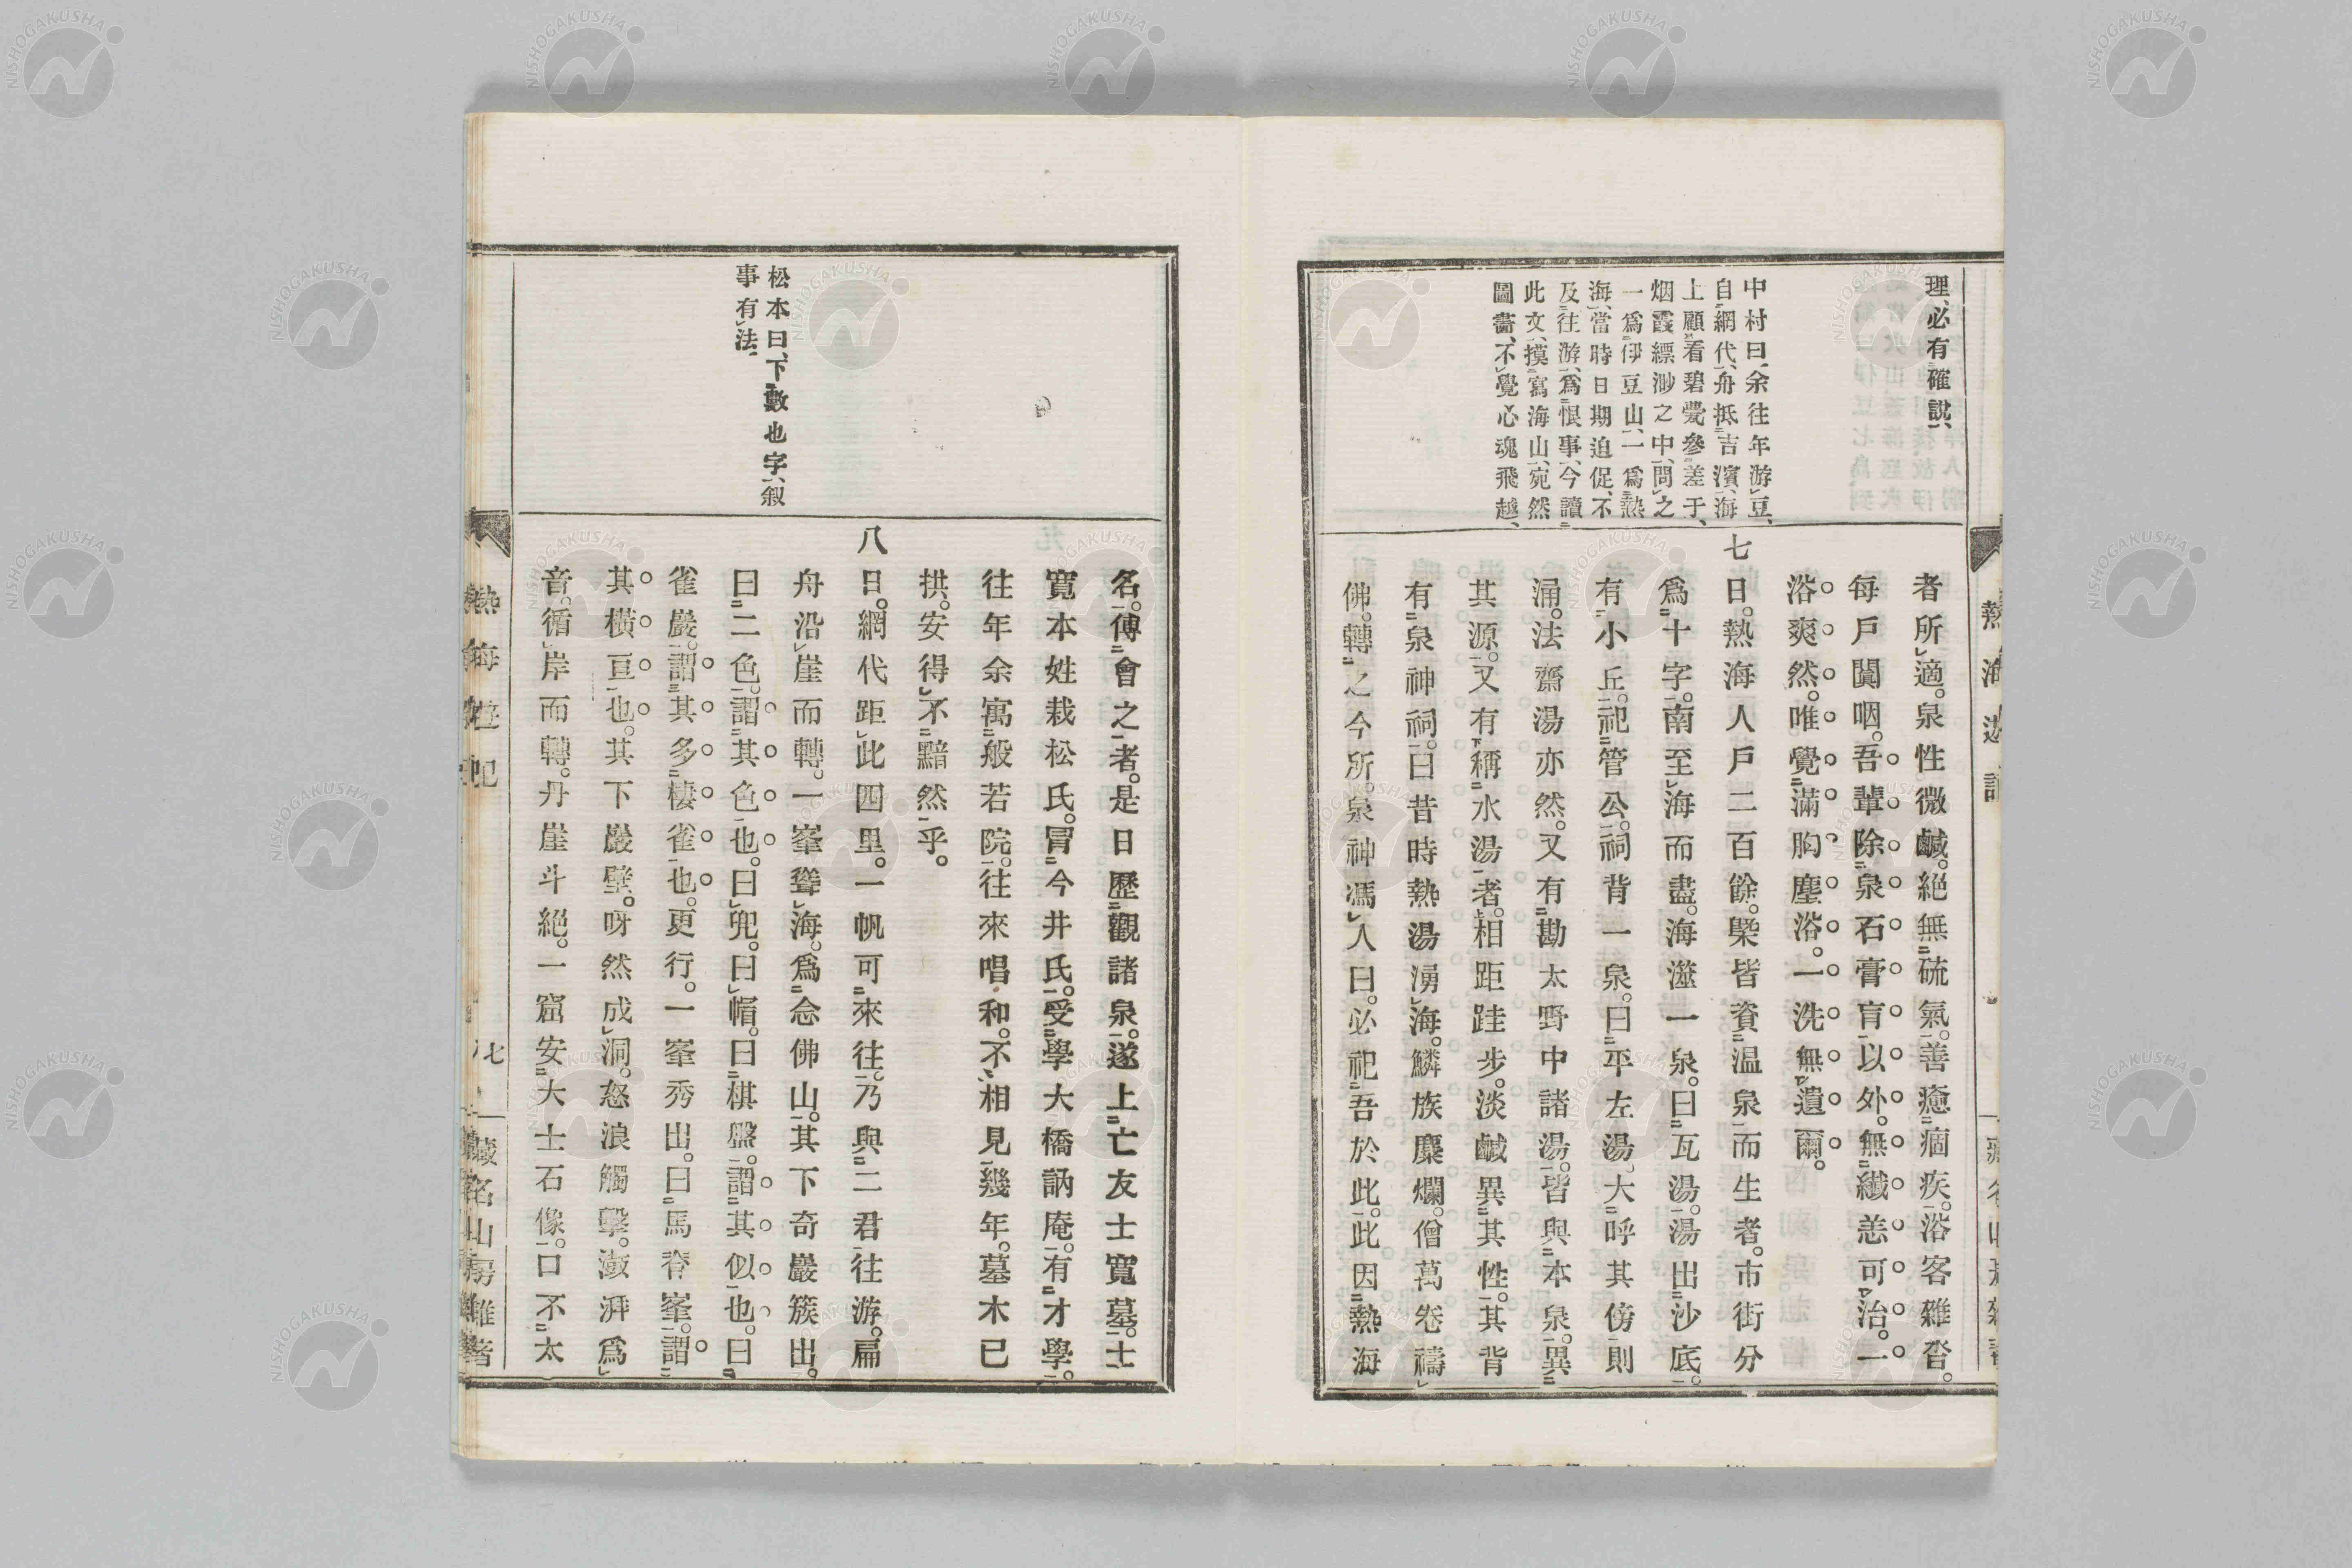 理、必有確說、
中村曰余往年游豆、
自網代、舟抵吉濱、海
上顧看碧甍參差于、
烟霞縹渺之中、問之
一爲伊豆山、一爲熱
海、當時日期迫促、不
及往游、爲恨事、今讀
此文、摸寫海山、宛然
圖畵、不覺心魂飛越、
者所適。泉性微鹹。絕無硫氣。善癒痼疾。浴客雜沓。
每戶闐咽。吾輩除泉石膏肓以外。無纖恙可治。一
浴爽然。唯覺滿胸塵浴。一洗無遺爾。
七日。熱海人戶二百餘。槩皆資温泉而生者。市街分
爲十字。南至海而盡。海澨一泉。曰瓦湯。湯出沙底。
有小丘。祀管公。祠背一泉。曰平左湯。大呼其傍則
涌。法齋湯亦然。又有勘太野中諸湯。皆與本泉。異
其源。又有稱水湯者。相距跬步。淡鹹異其性。其背
有泉神祠。曰昔時熱湯湧海。鱗族麋爛。僧萬卷禱
佛。轉之今所。泉神馮人曰。必祀吾於此。此因熱海
名。傅會之者。是日歷觀諸泉。遂上亡友士寬墓。士
寬本姓栽松氏。冐今井氏。受學大橋訥庵。有才學。
往年余寓般若院。往來唱和。不相見幾年。墓木已
拱。安得不黯然乎。
八日。網代距此四里。一帆可來往。乃與二君往游。扁
舟沿崖而轉。一峯聳海。爲念佛山。其下奇巖簇出。
曰二色。謂其色也。曰兜。曰帽。曰棋盤。謂其似也。曰
雀巖。謂其多棲雀也。更行。一峯秀出。曰馬脊峯。謂
其橫亘也。其下巖壁。呀然成洞。怒浪觸擊。潊湃爲
音。循岸而轉。丹崖斗絕。一窟安大士石像。口不太
松本曰、下數也字、叙
事有法、
熱海遊記
七
藏名山房雜著